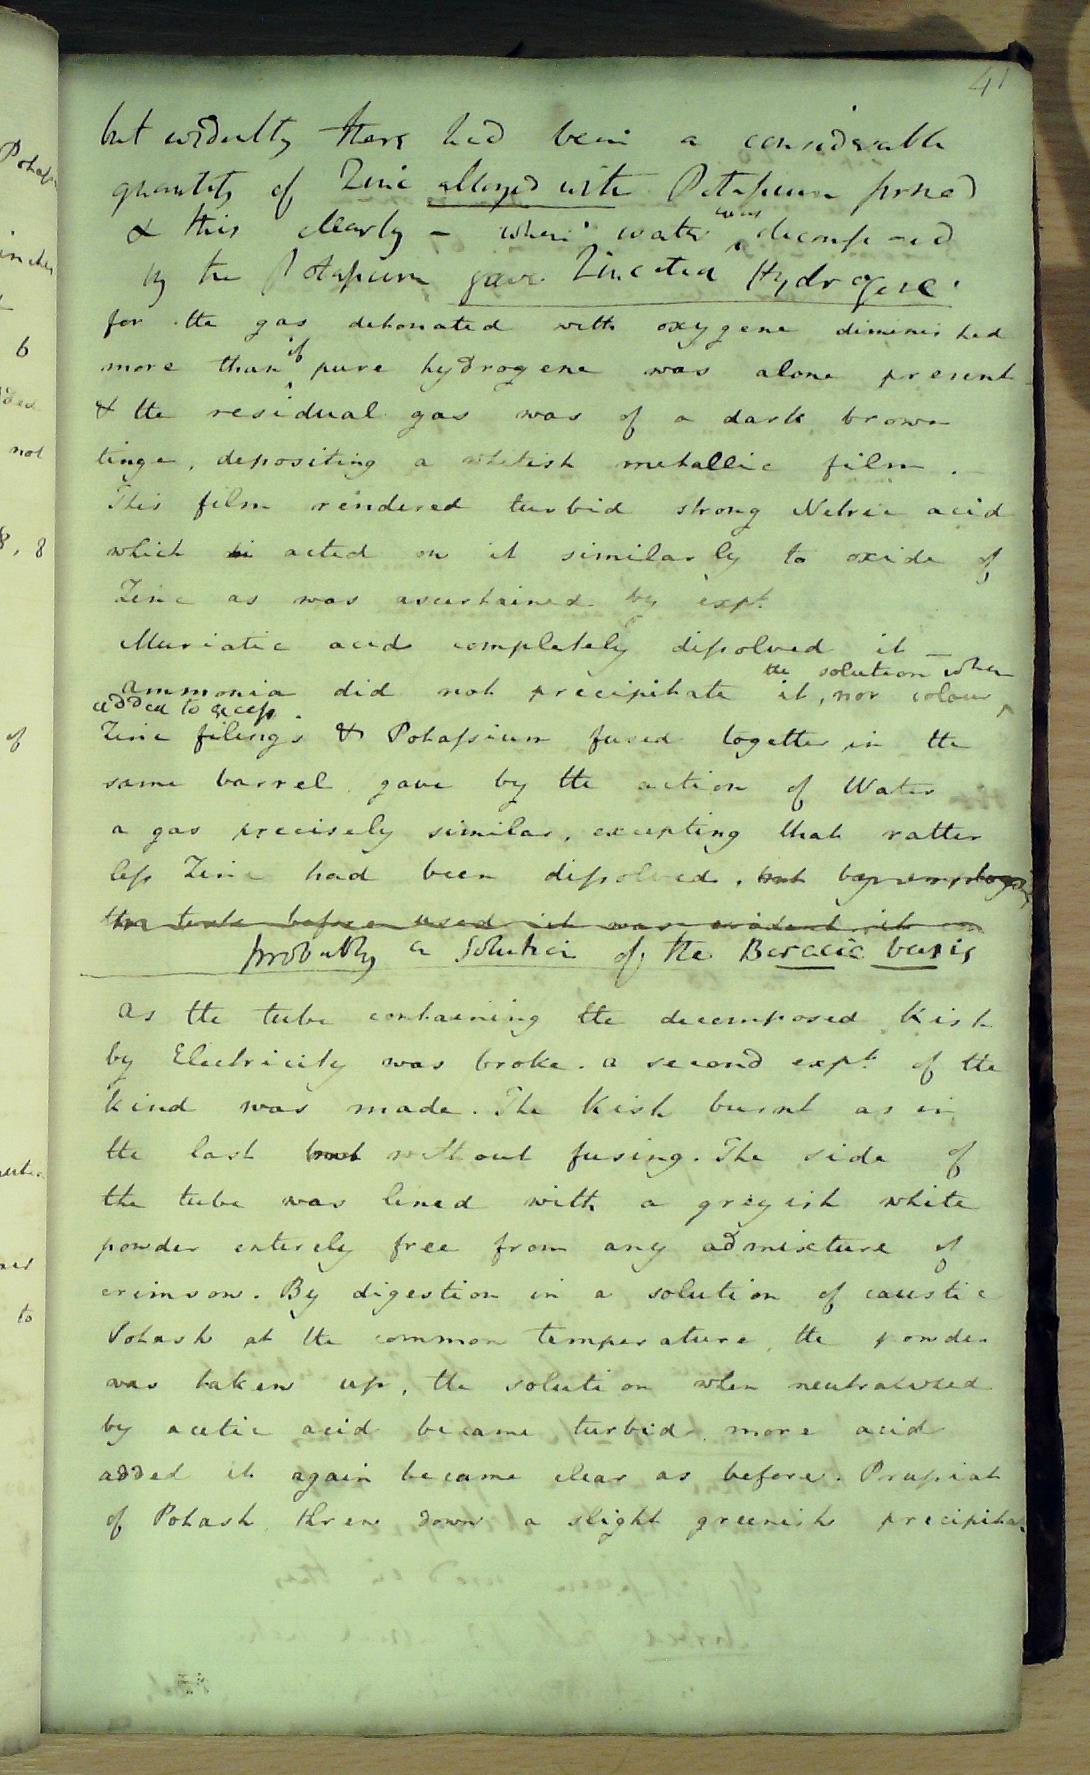 41
but evidently there had been a considerable
quantity of Zinc alloyed with Potassium formed
& this clearly – when water was decomposed
by the Potassium gave Zincated Hydrogene.
for the gas detonated with oxygene diminished
more than if pure hydrogene was alone present
& the residual gas was of a dark brown
tinge, depositing a whitish metallic film. –
This film rendered turbid strong Nitric acid
which acted on it similarly to oxide of
Zinc as was ascertained by expt.
Muriatic acid completely dissolved it –
ammonia did not precipitate it, nor colour the solution when
added to excess.
Zinc filings & Potassium fused together in the
same barrel gave by the action of Water
a gas precisely similar, excepting that rather
less Zinc had been dissolved, but by
the before used it was evident it
probably a Solution of the Boracic basis
As the tube containing the decomposed Kish
by Electricity was broke. a second expt. of the
kind was made. The Kish burnt as in
the last but without fusing. The side of
the tube was lined with a greyish white
powder entirely free from any admixture of
crimson. By digestion in a solution of caustic
Potash at the common temperature, the powder
was taken up, the solution when neutralized
by acetic acid became turbid. more acid
added it again became clear as before. Prussiat
of Potash threw down a slight greenish precipitat
Potass
inches
6
not
8, 8
of
to